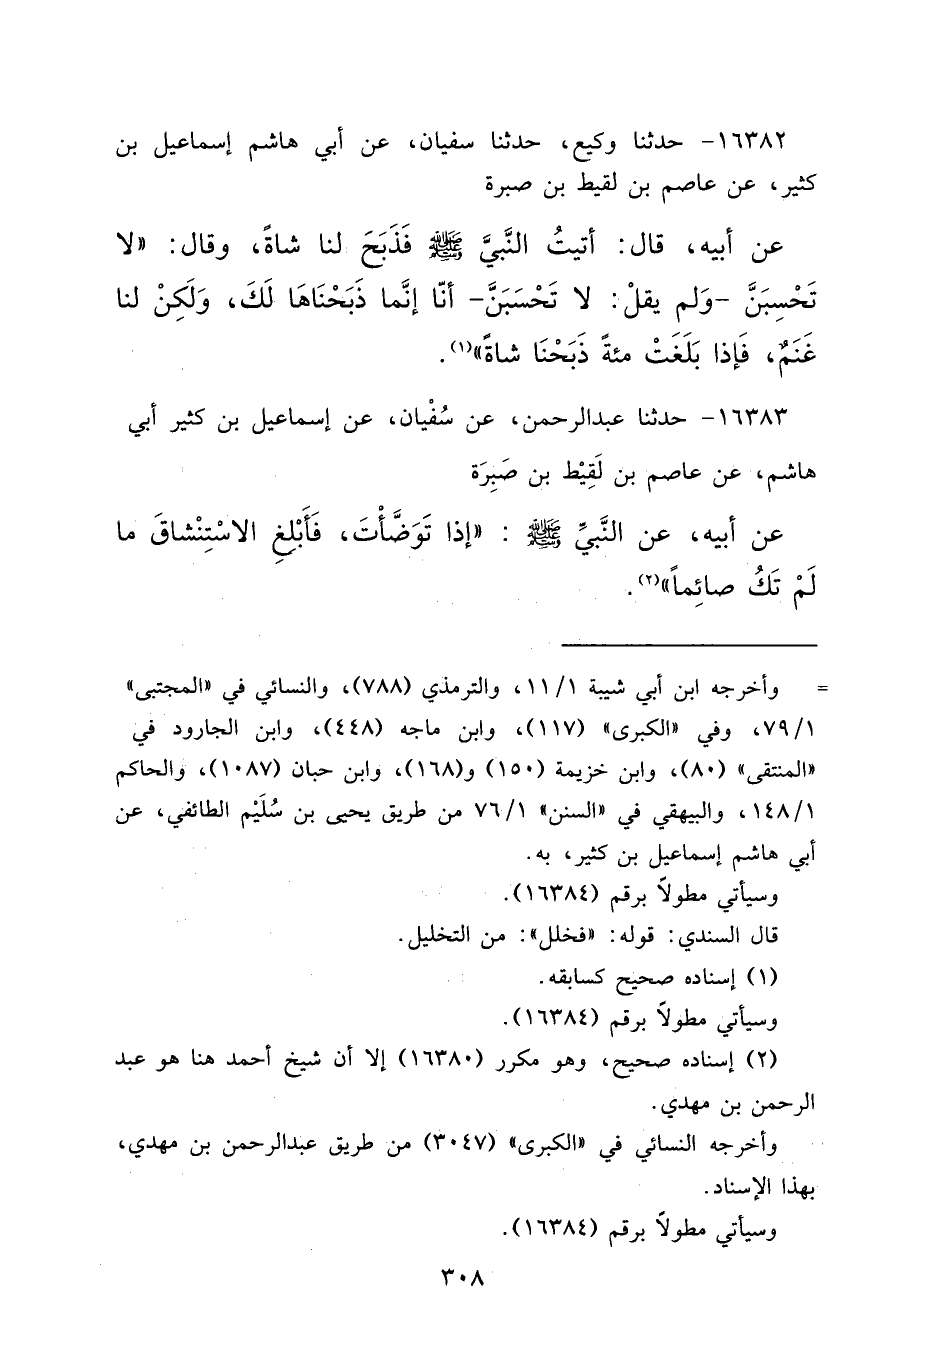 ١٦٣٨٢- حدثنا وكيع، حدثنا سفيان، عن أبي هاشم إسماعيل بن
كثير، عن عاصم بن لقيط بن صبرة
عن أبيه، قال: أتيتُ النَّبيَّ ﷺ فَذَبَحَ لنا شاةً، وقال: «لا
تَحْسِبَنَّ -وَلم يقلْ: لا تَحْسَبَنَّ- أنّا إنَّما ذَبَحْنَاهَا لَكَ، وَلَكِنْ لنا
غَنَمٌ، فَإذا بَلَغَتْ مئةً ذَبَحْنَا شاةً»(١).
١٦٣٨٣- حدثنا عبدالرحمن، عن سُفْيان، عن إسماعيل بن كثير أبي
هاشم، عن عاصم بن لَقِيْط بن صَبِرَة
عن أبيه، عن النَّبيِّ ﷺ : «إذا تَوَضَّأْتَ، فَأَبْلِغِ الاسْتِنْشاقَ ما
لَمْ تَكُ صائِماً»(٢).
= وأخرجه ابن أبي شيبة ١١/١، والترمذي (٧٨٨)، والنسائي في «المجتبى»
٧٩/١، وفي «الكبرى» (١١٧)، وابن ماجه (٤٤٨)، وابن الجارود في
«المنتقى» (٨٠)، وابن خزيمة (١٥٠) و(١٦٨)، وابن حبان (١٠٨٧)، والحاكم
١٤٨/١، والبيهقي في «السنن» ٧٦/١ من طريق يحيى بن سُلَيْم الطائفي، عن
أبي هاشم إسماعيل بن كثير، به.
وسيأتي مطولاً برقم (١٦٣٨٤).
قال السندي: قوله: «فخلل»: من التخليل.
(١) إسناده صحيح كسابقه.
وسيأتي مطولاً برقم (١٦٣٨٤).
(٢) إسناده صحيح، وهو مكرر (١٦٣٨٠) إلا أن شيخ أحمد هنا هو عبد
الرحمن بن مهدي.
وأخرجه النسائي في «الكبرى» (٣٠٤٧) من طريق عبدالرحمن بن مهدي،
بهذا الإسناد.
وسيأتي مطولاً برقم (١٦٣٨٤).
٣٠٨